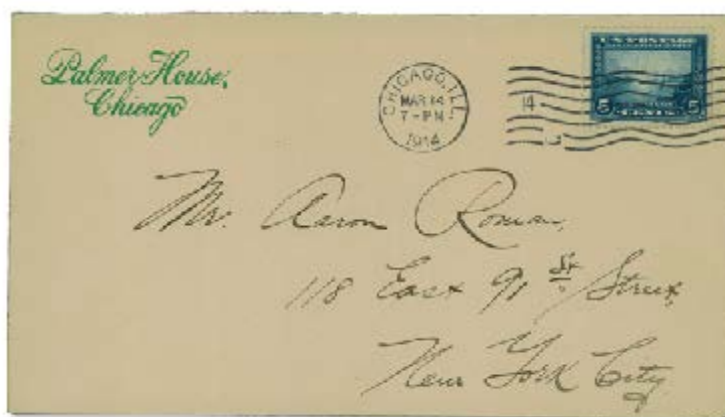 Palmer House,
Chicago
CHICAGO, ILL.
MAR 14
7 - PM
1914
14
U.S. POSTAGE
5 5
CENTS
Mr. Aaron Roman,
118 East 91st Street,
New York City